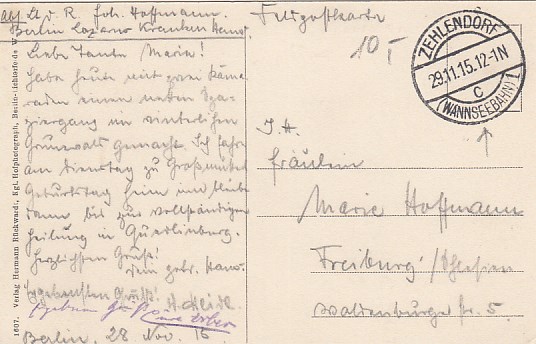 Abs. Lt. d. R. Joh. Hoffmann.
Berlin Lazarus Krankenhaus
Feldpostkarte
10
ZEHLENDORF
29.11.15.12-1N
c
(WANNSEEBAHN) 1
Liebe Tante Marie!
Habe heute mit zwei Kame-
raden einen netten Spa-
ziergang im winterlichen
Grunewald gemacht. Ich fahre
am Dienstag zu Großmutter
Geburtstag heim und bleibe
dann bis zur vollständigen
Heilung in Quedlinburg.
Herzlichsten Gruß!
Dein
Ergebensten Gruß!
Berlin, 28 Nov. 15
Fräulein
Marie Hoffmann
Freiburg /Schlesien
Waldenburger Str. 5.
1607. Verlag Hermann Rückwardt, Kgl. Hofphotograph, Berlin-Lichterfelde W.